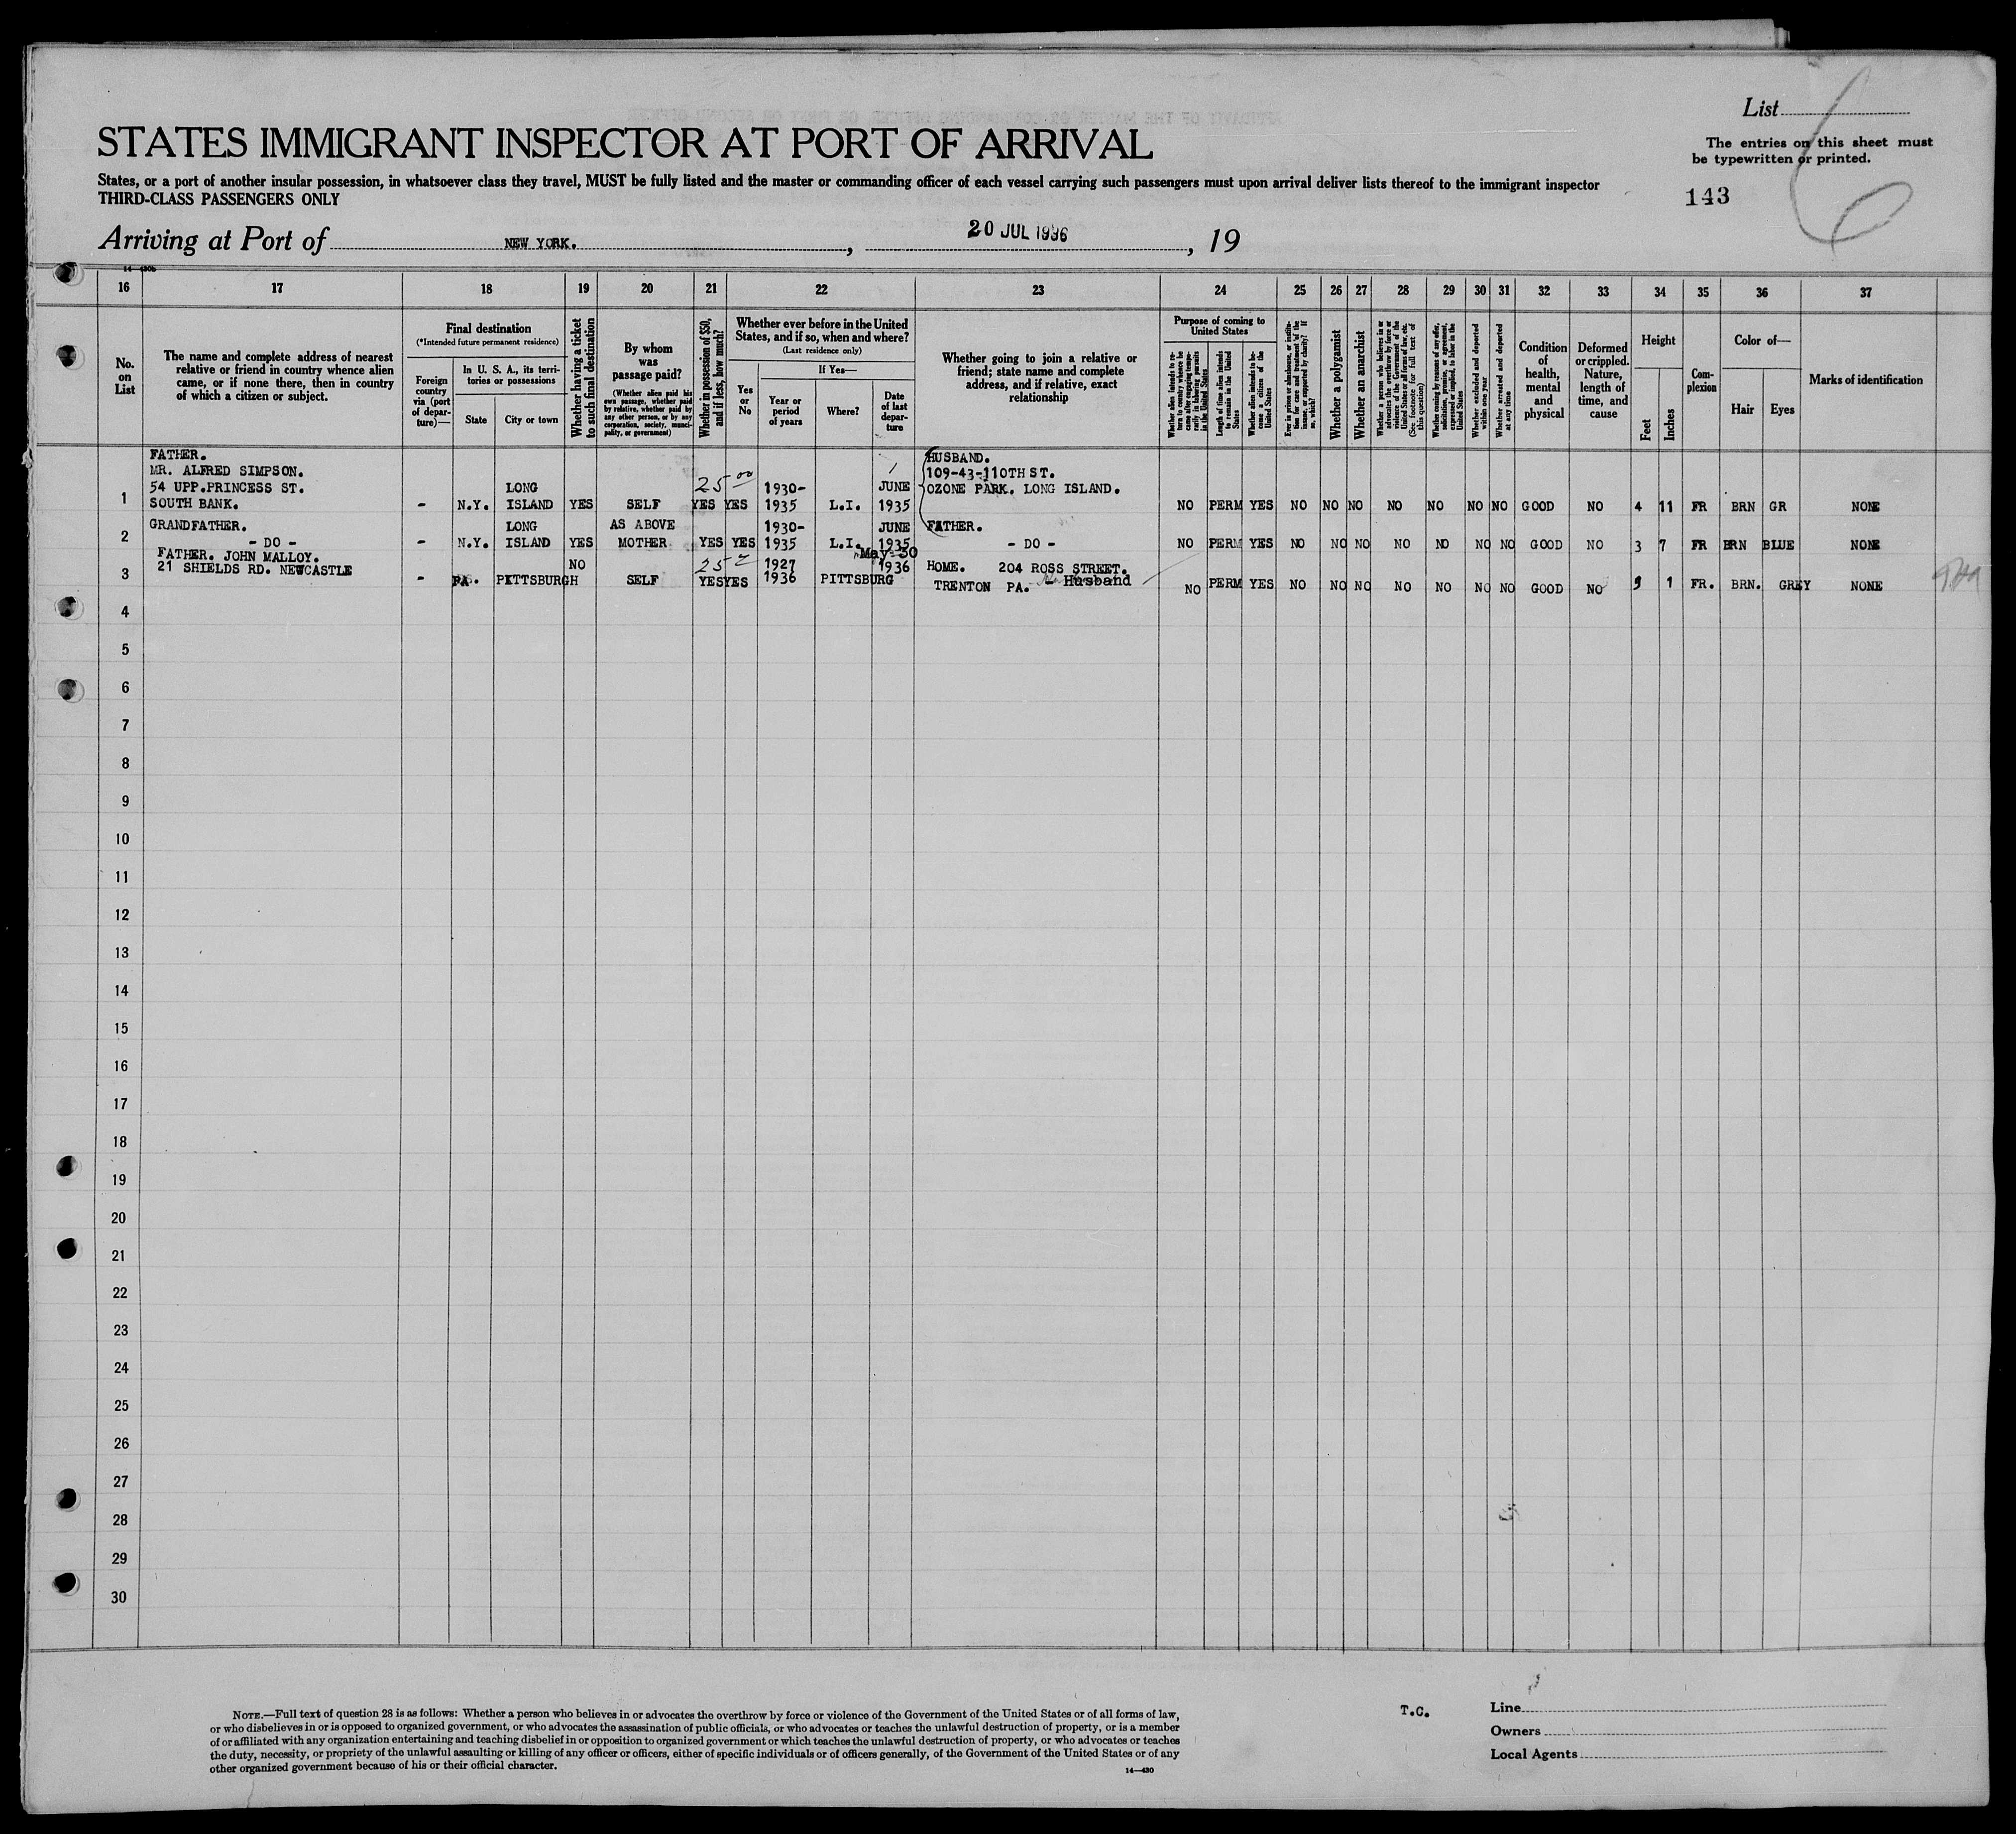 List
The entries on this sheet must
be typewritten or printed.
6
143
STATES IMMIGRANT INSPECTOR AT PORT OF ARRIVAL
States, or a port of another insular possession, in whatsoever class they travel, MUST be fully listed and the master or commanding officer of each vessel carrying such passengers must upon arrival deliver lists thereof to the immigrant inspector
THIRD-CLASS PASSENGERS ONLY
Arriving at Port of NEW YORK. , 20 JUL 1936 , 19
14-430b
16 17 18 19 20 21 22 23 24 25 26 27 28 29 30 31 32 33 34 35 36 37
No.
on
List
The name and complete address of nearest
relative or friend in country whence alien
came, or if none there, then in country
of which a citizen or subject.
Final destination
(*Intended future permanent residence)
Foreign
country
via (port
of depar-
ture)—
In U. S. A., its terri-
tories or possessions
State
City or town
Whether having a ticket
to such final destination
By whom
was
passage paid?
(Whether alien paid his
own passage, whether paid
by relative, whether paid by
any other person, or by any
corporation, society, munici-
pality, or government)
Whether in possession of $50,
and if less, how much?
Whether ever before in the United
States, and if so, when and where?
(Last residence only)
Yes
or
No
If Yes—
Year or
period
of years
Where?
Date
of last
depar-
ture
Whether going to join a relative or
friend; state name and complete
address, and if relative, exact
relationship
Purpose of coming to
United States
Length of time alien intends
to remain in the United
States
Whether alien intends to be-
come a citizen of the
United States
Whether a polygamist
Whether an anarchist
(See footnote for full text of
this question)
Whether excluded and deported
within one year
Whether arrested and deported
at any time
Condition
of
health,
mental
and
physical
Deformed
or crippled.
Nature,
length of
time, and
cause
Height
Feet
Inches
Com-
plexion
Color of—
Hair
Eyes
Marks of identification
FATHER.
MR. ALFRED SIMPSON.
54 UPP.PRINCESS ST.
SOUTH BANK.
1 - N.Y. LONG ISLAND YES SELF 25 00 YES YES 1930-1935 L.I. 1 JUNE 1935
HUSBAND.
109-43-110TH ST.
OZONE PARK. LONG ISLAND.
NO PERM YES NO NO NO NO NO NO NO GOOD NO 4 11 FR BRN GR NONE
GRANDFATHER.
2 - DO - - N.Y. LONG ISLAND YES AS ABOVE MOTHER YES YES 1930-1935 L.I. JUNE 1935
FATHER.
- DO - NO PERM YES NO NO NO NO NO NO NO GOOD NO 3 7 FR BRN BLUE NONE
FATHER. JOHN MALLOY.
21 SHIELDS RD. NEWCASTLE
3 - PA. PITTSBURGH NO SELF 25 YES YES 1927 1936 PITTSBURG May-30 1936
HOME. 204 ROSS STREET.
TRENTON PA. Husband
NO PERM YES NO NO NO NO NO NO NO GOOD NO 5 1 FR. BRN. GREY NONE
4
5
6
7
8
9
10
11
12
13
14
15
16
17
18
19
20
21
22
23
24
25
26
27
28
29
30
NOTE.—Full text of question 28 is as follows: Whether a person who believes in or advocates the overthrow by force or violence of the Government of the United States or of all forms of law,
or who disbelieves in or is opposed to organized government, or who advocates the assassination of public officials, or who advocates or teaches the unlawful destruction of property, or is a member
of or affiliated with any organization entertaining and teaching disbelief in or opposition to organized government or which teaches the unlawful destruction of property, or who advocates or teaches
the duty, necessity, or propriety of the unlawful assaulting or killing of any officer or officers, either of specific individuals or of officers generally, of the Government of the United States or of any
other organized government because of his or their official character.
14—430
T.C.
Line
Owners
Local Agents